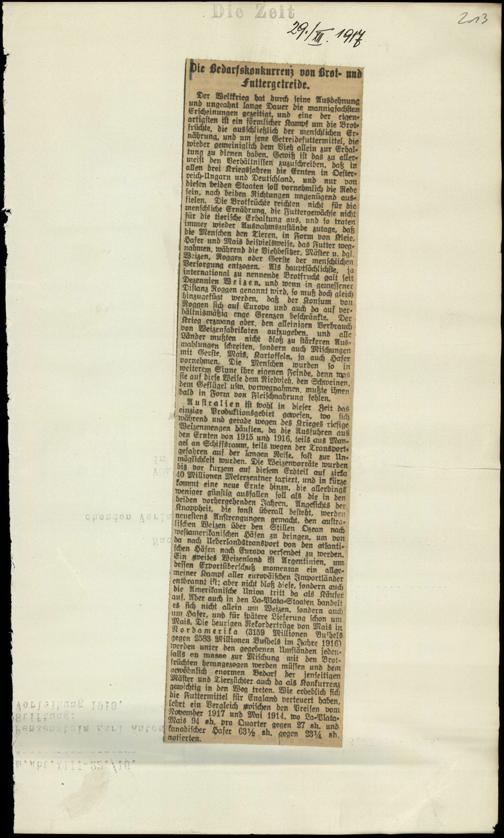 Die Zeit
29./XII. 1917
203
Die Bedarfskonkurrenz von Brot- und
Futtergetreide.
Der Weltkrieg hat durch seine Ausdehnung
und ungeahnt lange Dauer die mannigfachsten
Erscheinungen gezeitigt, und eine der eigen-
artigsten ist ein förmlicher Kampf um die Brot-
früchte, die ausschließlich der menschlichen Er-
nährung, und um jene Getreidefuttermittel, die
wieder gemeiniglich dem Vieh allein zur Erhal-
tung zu dienen haben. Gewiß ist das zu aller-
meist den Verhältnissen zuzuschreiben, daß in
allen drei Kriegsjahren die Ernten in Oester-
reich-Ungarn und Deutschland, und nur von
diesen beiden Staaten soll vornehmlich die Rede
sein, nach beiden Richtungen ungenügend aus-
fielen. Die Brotfrüchte reichten nicht für die
menschliche Ernährung, die Futtergewächse nicht
für die tierische Erhaltung aus, und so traten
immer wieder Ausnahmszustände zutage, daß
die Menschen den Tieren, in Form von Kleie,
Hafer und Mais beispielsweise, das Futter weg-
nahmen, während die Viehbesitzer, Mäster u. dgl.
Weizen, Roggen oder Gerste der menschlichen
Versorgung entzogen. Als hauptsächlichste, ja
international zu nennende Brotfrucht galt seit
Dezennien Weizen, und wenn in gemessener
Distanz Roggen genannt wird, so muß doch gleich
hinzugefügt werden, daß der Konsum von
Roggen sich auf Europa und auch da auf ver-
hältnismäßig enge Grenzen beschränkte. Der
Krieg erzwang aber, den alleinigen Verbrauch
von Weizenfabrikaten aufzugeben, und alle
Länder mußten nicht bloß zu stärkeren Aus-
mahlungen schreiten, sondern auch Mischungen
mit Gerste, Mais, Kartoffeln, ja auch Hafer
vornehmen. Die Menschen wurden so in
weiterem Sinne ihre eigenen Feinde, denn was
sie auf diese Weise dem Rindvieh, den Schweinen,
dem Geflügel usw. vorwegnahmen, mußte ihnen
bald in Form von Fleischnahrung fehlen.
Australien ist wohl in dieser Zeit das
einzige Produktionsgebiet gewesen, wo sich
während und gerade wegen des Krieges riesige
Weizenmengen häuften, da die Ausfuhren aus
den Ernten von 1915 und 1916, teils aus Man-
gel an Schiffsraum, teils wegen der Transport-
gefahren auf der langen Reise, fast zur Un-
möglichkeit wurden. Die Weizenvorräte wurden
bis vor kurzem auf diesem Erdteil auf zirka
40 Millionen Meterzentner taxiert, und in kürze
kommt eine neue Ernte hinzu, die allerdings
weniger günstig ausfallen soll als die in den
beiden vorhergehenden Jahren. Angesichts der
Knappheit, die sonst überall besteht, werden
neuestens Anstrengungen gemacht, den austra-
lischen Weizen über den Stillen Ozean nach
westamerikanischen Häfen zu bringen, um von
da nach Ueberlandstransport von den atlanti-
schen Häfen nach Europa versendet zu werden.
Ein zweites Weizenland ist Argentinien, um
dessen Exportüberschuß momentan ein allge-
meiner Kampf aller europäischen Importländer
entbrannt ist; aber nicht bloß diese, sondern auch
die Amerikanische Union tritt da als Käufer
auf. Aber auch in den La-Plata-Staaten handelt
es sich nicht allein um Weizen, sondern auch
um Hafer, und für spätere Lieferung schon um
Mais. Die heurigen Rekorderträge von Mais in
Nordamerika (3159 Millionen Bushels
gegen 2583 Millionen Bushels im Jahre 1916)
werden unter den gegebenen Umständen jeden-
falls en masse zur Mischung mit den Brot-
früchten herangezogen werden müssen und dem
gewöhnlich enormen Bedarf der jenseitigen
Mäster und Tierzüchter auch da als Konkurrenz
gewichtig in den Weg treten. Wie erheblich sich
die Futtermittel für England verteuert haben,
lehrt ein Vergleich zwischen den Preisen vom
November 1917 und Mai 1914, wo La-Plata-
Mais 94 sh. pro Quarter gegen 27 sh. und
kanadischer Hafer 63½ sh. gegen 23¼ sh.
notierten.